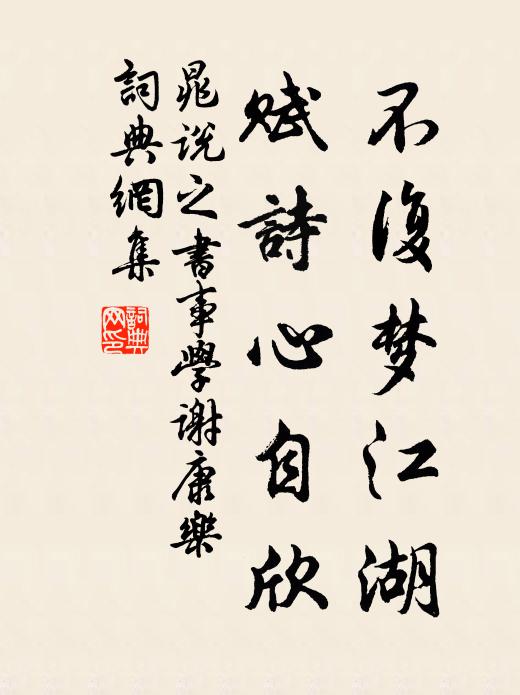 不復梦江湖
赋詩心自欣
晁说之書事學谢康樂
詞典網集
詞典网印